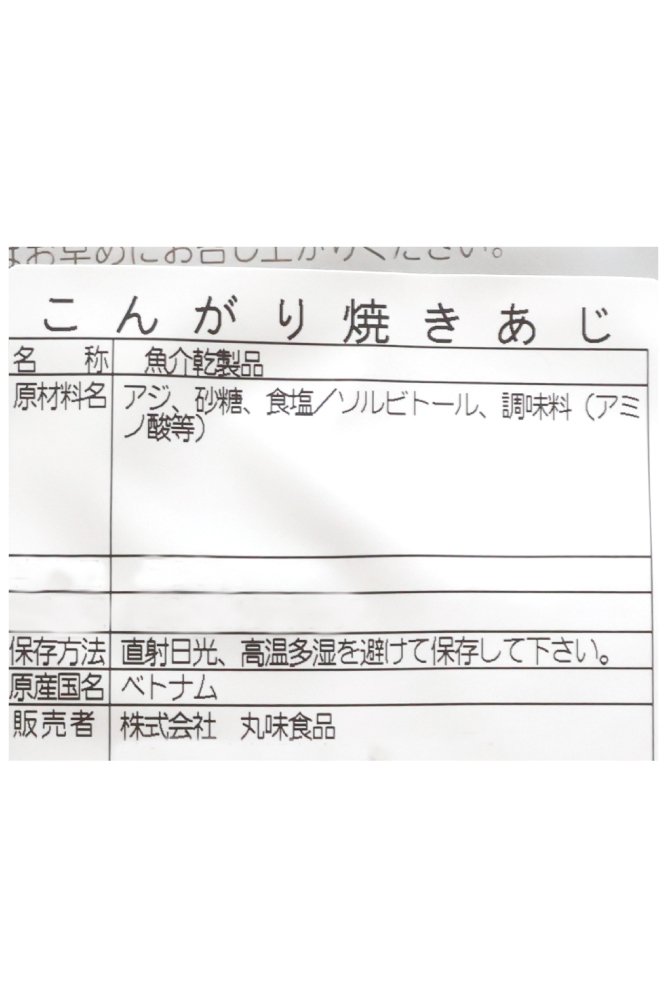 はお早めにお召し上がりください。
こんがり焼きあじ
名 称 魚介乾製品
原材料名 アジ、砂糖、食塩／ソルビトール、調味料（アミ
ノ酸等）
保存方法 直射日光、高温多湿を避けて保存して下さい。
原産国名 ベトナム
販売者 株式会社 丸味食品